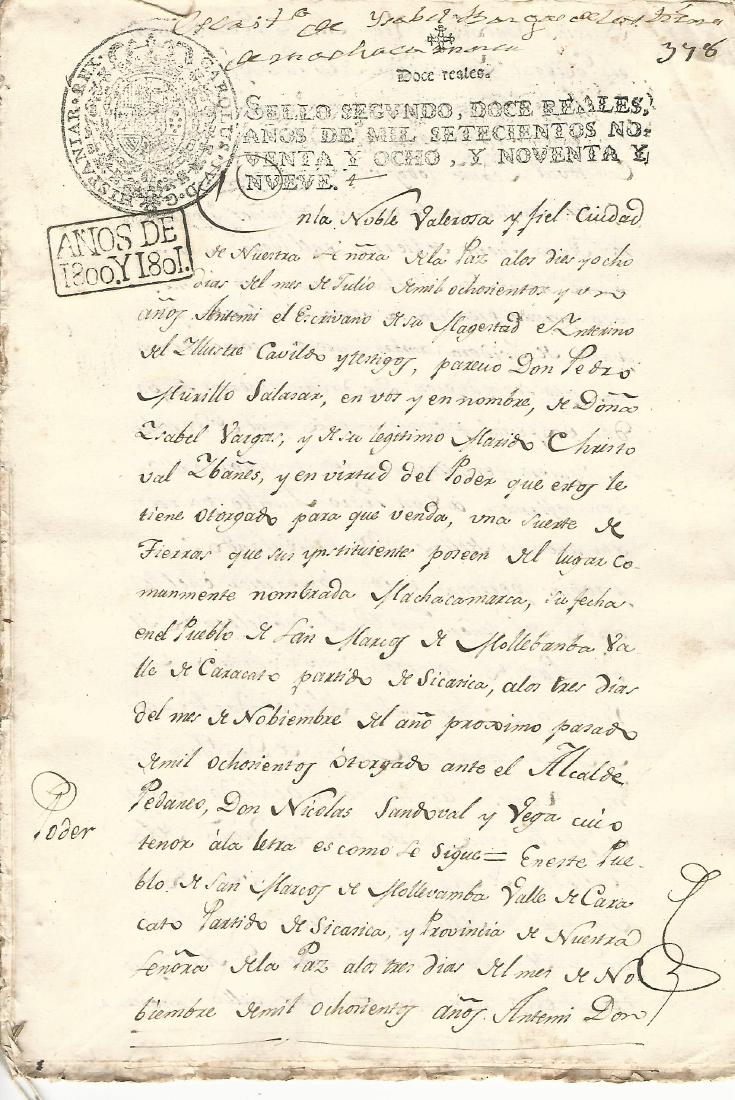 de Ysabel Bargas de las tierras
de machacamarca
378
Doce reales.
HISPANIAR·REX· CAROLUS·IV·D·G·
SELLO SEGVNDO, DOCE REALES,
AÑOS DE MIL SETECIENTOS NO-
VENTA Y OCHO, Y NOVENTA Y
NVEVE.
AÑOS DE
1800. Y 1801.
Enla Noble Valerosa y fiel Ciudad
de Nuestra Señora dela Paz alos dies y ocho
dias del mes de Julio demil ochosientos y uno
años. Antemi el Escrivano desu Magestad e Ynterino
del Yllustre Cavildo y testigos, parecio Don Pedro
Murillo Salasar, en vos y en nombre, de Doña
Ysabel Vargas, y desu legitimo Marido Christo
val Ybañes, y en virtud del Poder que estos le
tiene otorgado para que venda, una suerte de
Tierras que sus ynstituientes poseen del lugar co-
munmente nombrada Machacamarca, su fecha
enel Pueblo de San Marcos de Mollebamba Va
lle de Caracato partido de Sicasica, alos tres dias
del mes de Nobiembre del año proximo pasado
demil ochosientos otorgado ante el Alcalde
Pedaneo, Don Nicolas Sandoval y Vega cuio
Poder
tenor ála letra es como se sigue = Eneste Pue-
blo de San Marcos de Mollevamba Valle de Cara
cato Partido de Sicasica, y Provincia de Nuestra
Señora dela Paz alos tres dias del mes de No-
biembre demil ochosientos años. Antemi Don